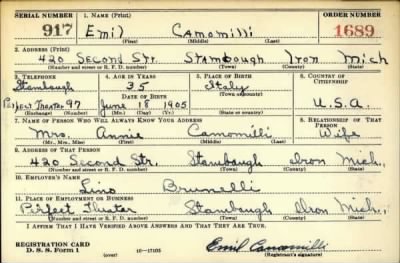 SERIAL NUMBER 1. NAME (Print) ORDER NUMBER
917 Emil Camomilli 1689
(First) (Middle) (Last)
2. ADDRESS (Print)
420 Second Str. Stambaugh Iron Mich
(Number and street or R. F. D. number) (Town) (County) (State)
3. TELEPHONE 4. AGE IN YEARS 5. PLACE OF BIRTH 6. COUNTRY OF CITIZENSHIP
Stambaugh 35 Italy
(Town or county)
DATE OF BIRTH
Perfect Theatre 97 June 18 1905 U.S.A.
(Exchange) (Number) (Mo.) (Day) (Yr.) (State or country)
7. NAME OF PERSON WHO WILL ALWAYS KNOW YOUR ADDRESS 8. RELATIONSHIP OF THAT PERSON
Mrs. Annie Camomilli Wife
(Mr., Mrs., Miss) (First) (Middle) (Last)
9. ADDRESS OF THAT PERSON
420 Second Str. Stambaugh Iron Mich.
(Number and street or R. F. D. number) (Town) (County) (State)
10. EMPLOYER'S NAME
Lino Brunelli
11. PLACE OF EMPLOYMENT OR BUSINESS
Perfect Theater Stambaugh Iron Mich.
(Number and street or R. F. D. number) (Town) (County) (State)
I AFFIRM THAT I HAVE VERIFIED ABOVE ANSWERS AND THAT THEY ARE TRUE.
REGISTRATION CARD
D. S. S. Form 1 (over) 16—17105 Emil Camomilli
(Registrant's signature)